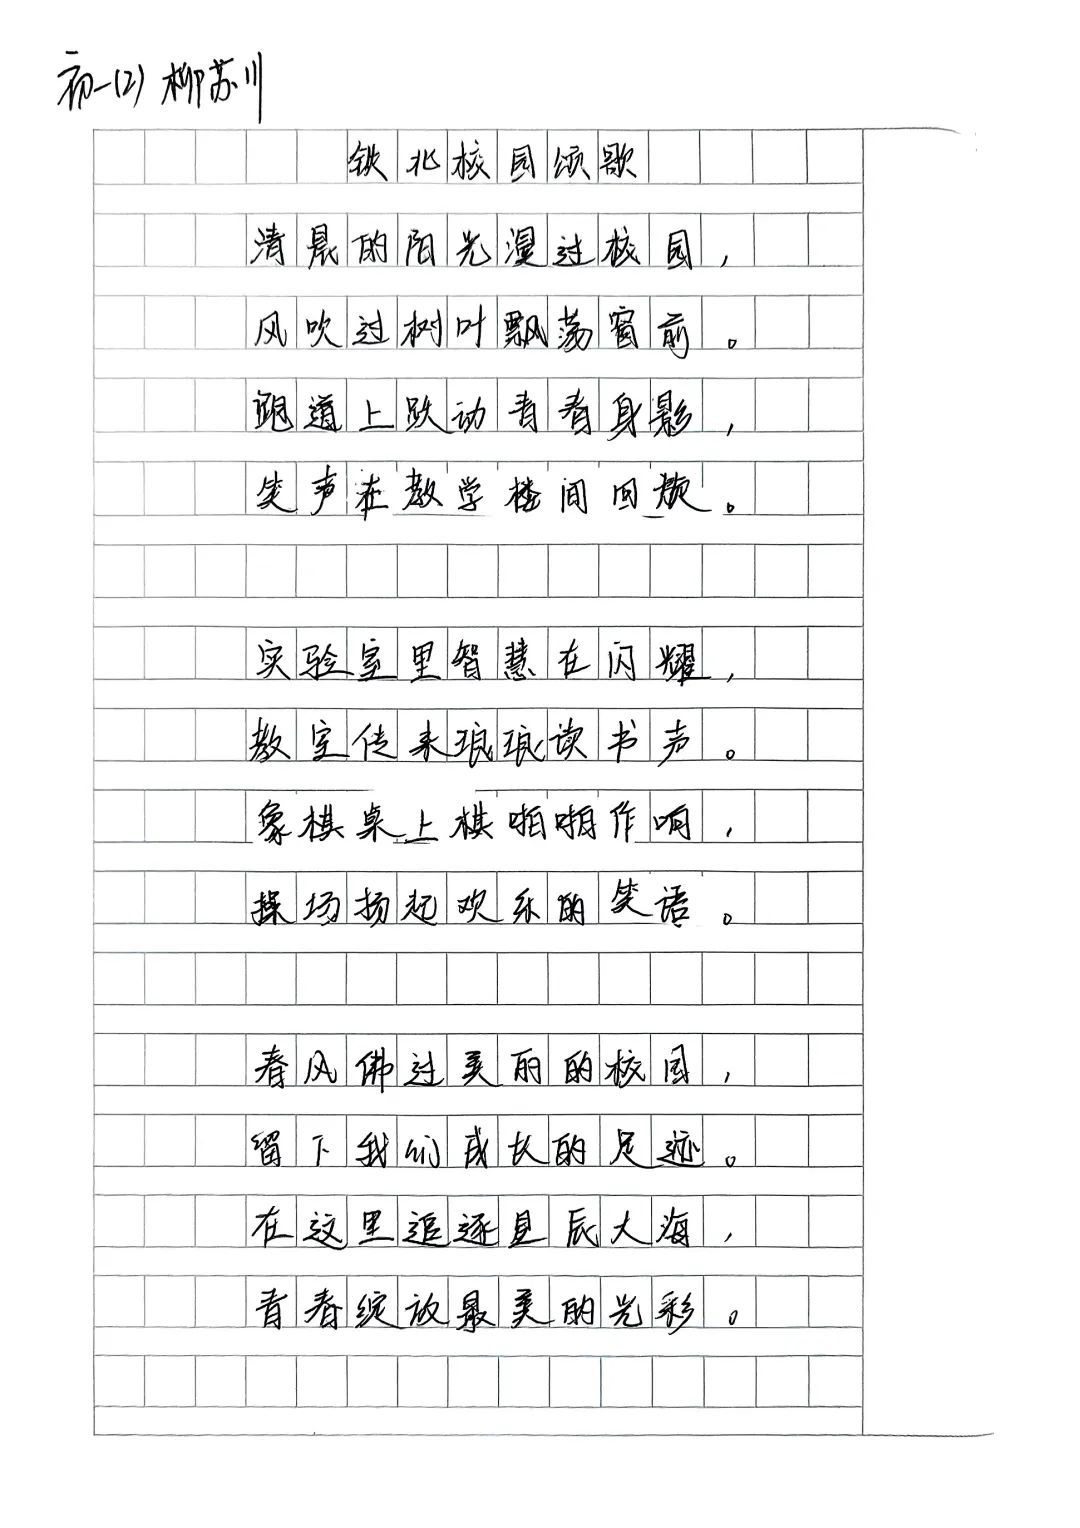 初一(2) 柳苏川
铁北校园颂歌
清晨的阳光漫过校园，
风吹过树叶飘荡窗前。
跑道上跃动青春身影，
笑声在教学楼间回旋。
实验室里智慧在闪耀，
教室传来琅琅读书声。
象棋桌上棋啪啪作响，
操场扬起欢乐的笑语。
春风佛过美丽的校园，
留下我们成长的足迹。
在这里追逐星辰大海，
青春绽放最美的光彩。